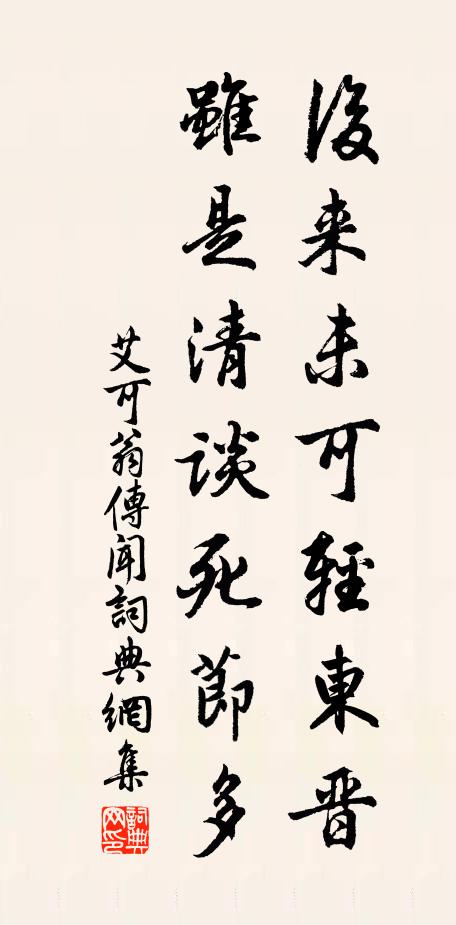 後来未可輕東晋
雖是清談死節多
艾可翁傳聞詞典網集
詞典網印